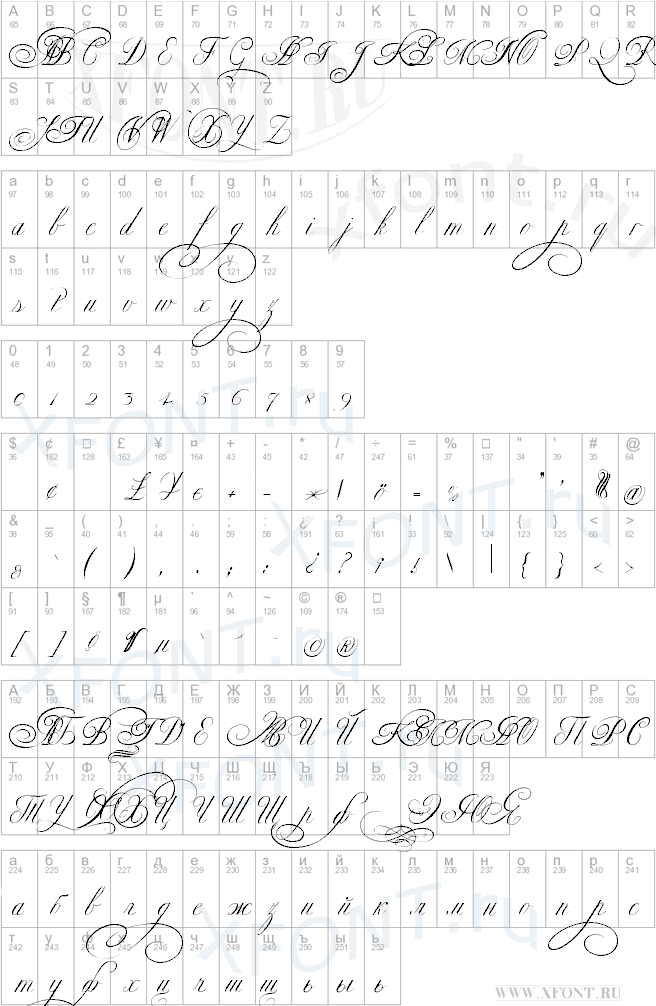 A B C D E F G H I J K L M N O P Q R
65 66 67 68 69 70 71 72 73 74 75 76 77 78 79 80 81 82
A B C D E F G H I J K L M N O P Q R
S T U V W X Y Z
83 84 85 86 87 88 89 90
S T U V W X Y Z
a b c d e f g h i j k l m n o p q r
97 98 99 100 101 102 103 104 105 106 107 108 109 110 111 112 113 114
a b c d e f g h i j k l m n o p q r
s t u v w x y z
115 116 117 118 119 120 121 122
s t u v w x y z
0 1 2 3 4 5 6 7 8 9
48 49 50 51 52 53 54 55 56 57
0 1 2 3 4 5 6 7 8 9
$ ¢ □ £ ¥ ¤ + - * / ÷ = % □ " ' # @
36 162 128 163 165 164 43 45 42 47 247 61 37 137 34 39 35 64
¢ £ ¥ € + - * / ö = % " ' @
& _ ( ) , . ; : ¿ ? ¡ ! \ | { } < >
38 95 40 41 44 46 59 58 191 63 161 33 92 124 123 125 60 62
( ) , . ; : ¿ ? ¡ ! \ | { } < >
[ ] § ¶ µ ` ^ ~ © ® □
91 93 167 182 181 96 94 126 169 174 153
[ ] § ¶ и © ®
А Б В Г Д Е Ж З И Й К Л М Н О П Р С
192 193 194 195 196 197 198 199 200 201 202 203 204 205 206 207 208 209
А Б В Г Д Е Ж З И Й К Л М Н О П Р С
Т У Ф Х Ц Ч Ш Щ Ъ Ы Ь Э Ю Я
210 211 212 213 214 215 216 217 218 219 220 221 222 223
Т У Ф Х Ц Ч Ш Щ Э Ю Я
а б в г д е ж з и й к л м н о п р с
224 225 226 227 228 229 230 231 232 233 234 235 236 237 238 239 240 241
а б в г д е ж з и й к л м н о п р с
т у ф х ц ч ш щ ъ ы ь
242 243 244 245 246 247 248 249 250 251 252
т у ф х ц ч ш щ ъ ы ь
WWW.XFONT.RU